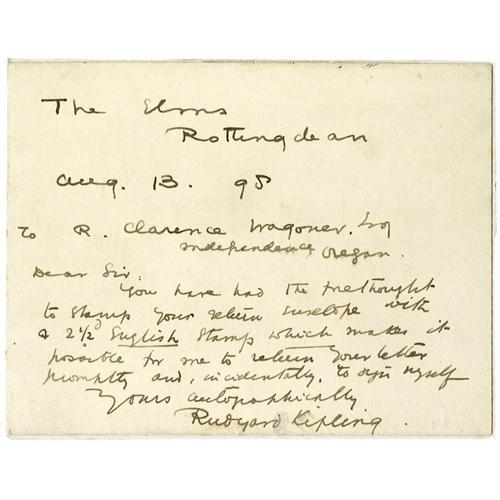 The Elms
Rottingdean
Aug. 13. 98
To R. Clarence Wagoner. Esq
Independence Oregon.
Dear Sir:
You have had the forethought
to stamp your return envelope with
a 2½d English stamp which makes it
possible for me to return your letter
promptly and, incidentally, to sign myself
Yours autographically
Rudyard Kipling.